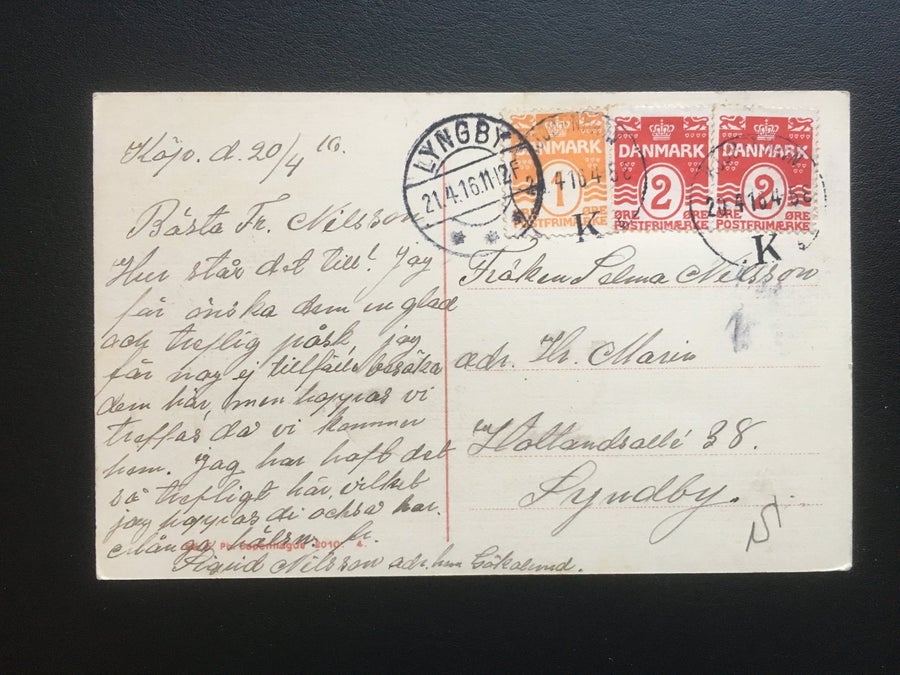 Köpv. d. 20/4 16.
Bästa Fr. Nilsson
Hur står det till! Jag
får önska dem en glad
och treflig påsk, jag
får nog ej tillfälle besöka
dem här, men hoppas vi
träffas då vi kommer
hem. Jag har haft det
så trefligt här, vilket
jag hoppas di också har.
Många hälsn. fr.
Sigrid Nilsson adr. herr Gökalund.
Copenhague 2010. 4.
LYNGBY
21.4.16.11-12F
DANMARK
1
ØRE
POSTFRIMÆRKE
DANMARK
2
ØRE ØRE
POSTFRIMÆRKE
DANMARK
2
ØRE ØRE
POSTFRIMÆRKE
K
K
Fröken Selma Nilsson
adr. Hr. Marin
Hollandsallé 38.
Lyndby.